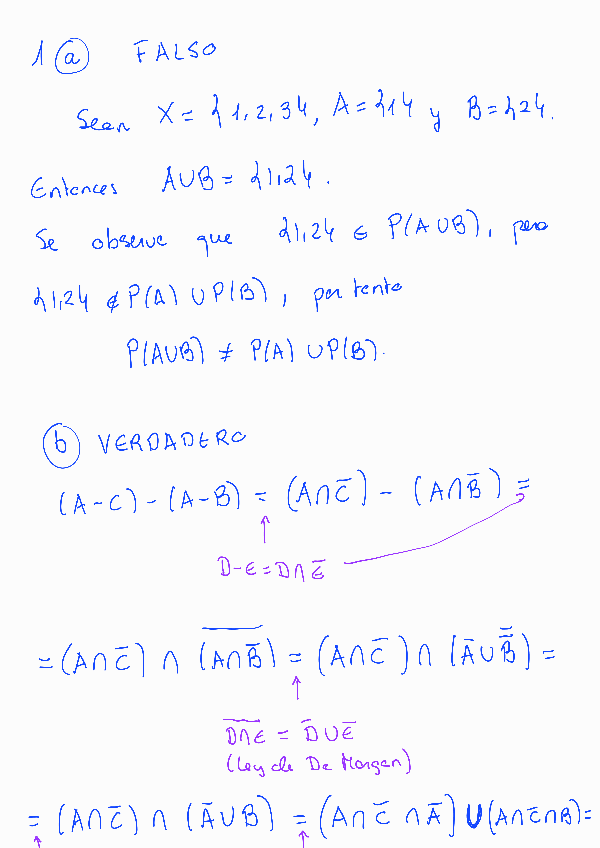 1 ⓐ FALSO
Sean X = {1,2,3}, A = {1} y B = {2}.
Entonces A∪B = {1,2}.
Se observa que {1,2} ∈ P(A∪B), pero
{1,2} ∉ P(A) ∪ P(B), por tanto
P(A∪B) ≠ P(A) ∪ P(B).
ⓑ VERDADERO
(A-C) - (A-B) = (A∩C̅) - (A∩B̅) =
↑
D-E = D∩E̅
= (A∩C̅) ∩ \overline{(A∩B̅)} = (A∩C̅) ∩ (A̅∪B̿) =
↑
\overline{D∩E} = D̅∪E̅
(Ley de De Morgan)
= (A∩C̅) ∩ (A̅∪B) = (A∩C̅∩A̅) ∪ (A∩C̅∩B) =
↑ ↑